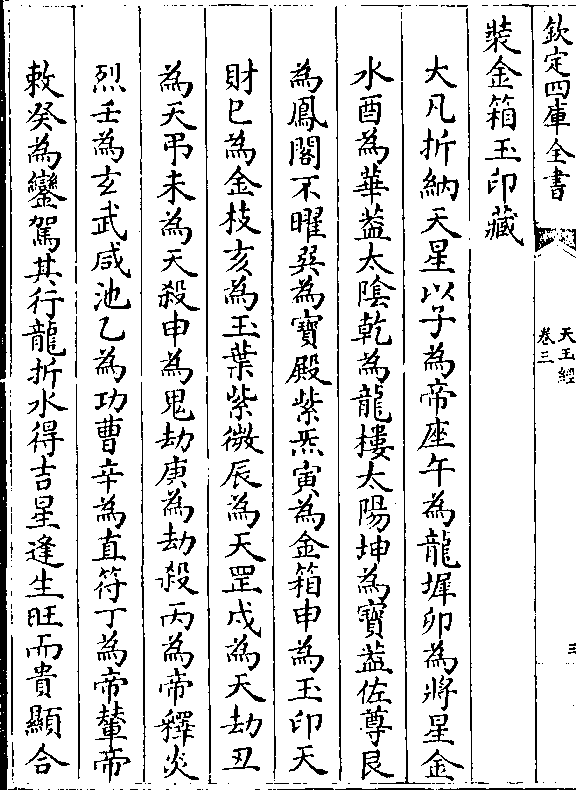 欽定四庫全書
天玉經
卷三
三
裝金箱玉印藏
大凡折納天星以子為帝座午為龍墀卯為將星金
水酉為華葢太陰乾為龍樓太陽坤為寳葢佐尊艮
為鳳閣不曜㢲為寳殿紫炁寅為金箱申為玉印天
財巳為金枝亥為玉葉紫微辰為天罡戌為天劫丑
為天弔未為天殺申為鬼劫庚為劫殺丙為帝釋炎
烈壬為玄武咸池乙為功曹辛為直符丁為帝輦帝
敕癸為鑾駕其行龍折水得吉星逢生旺而貴顯合